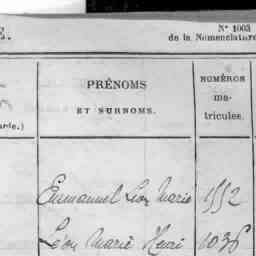 E.
N° 1003
de la Nomenclature
PRÉNOMS
ET SURNOMS.
NUMÉROS
ma-
tricules.
Emmanuel Léon Marie 1552
Léon Marie Henri 1036